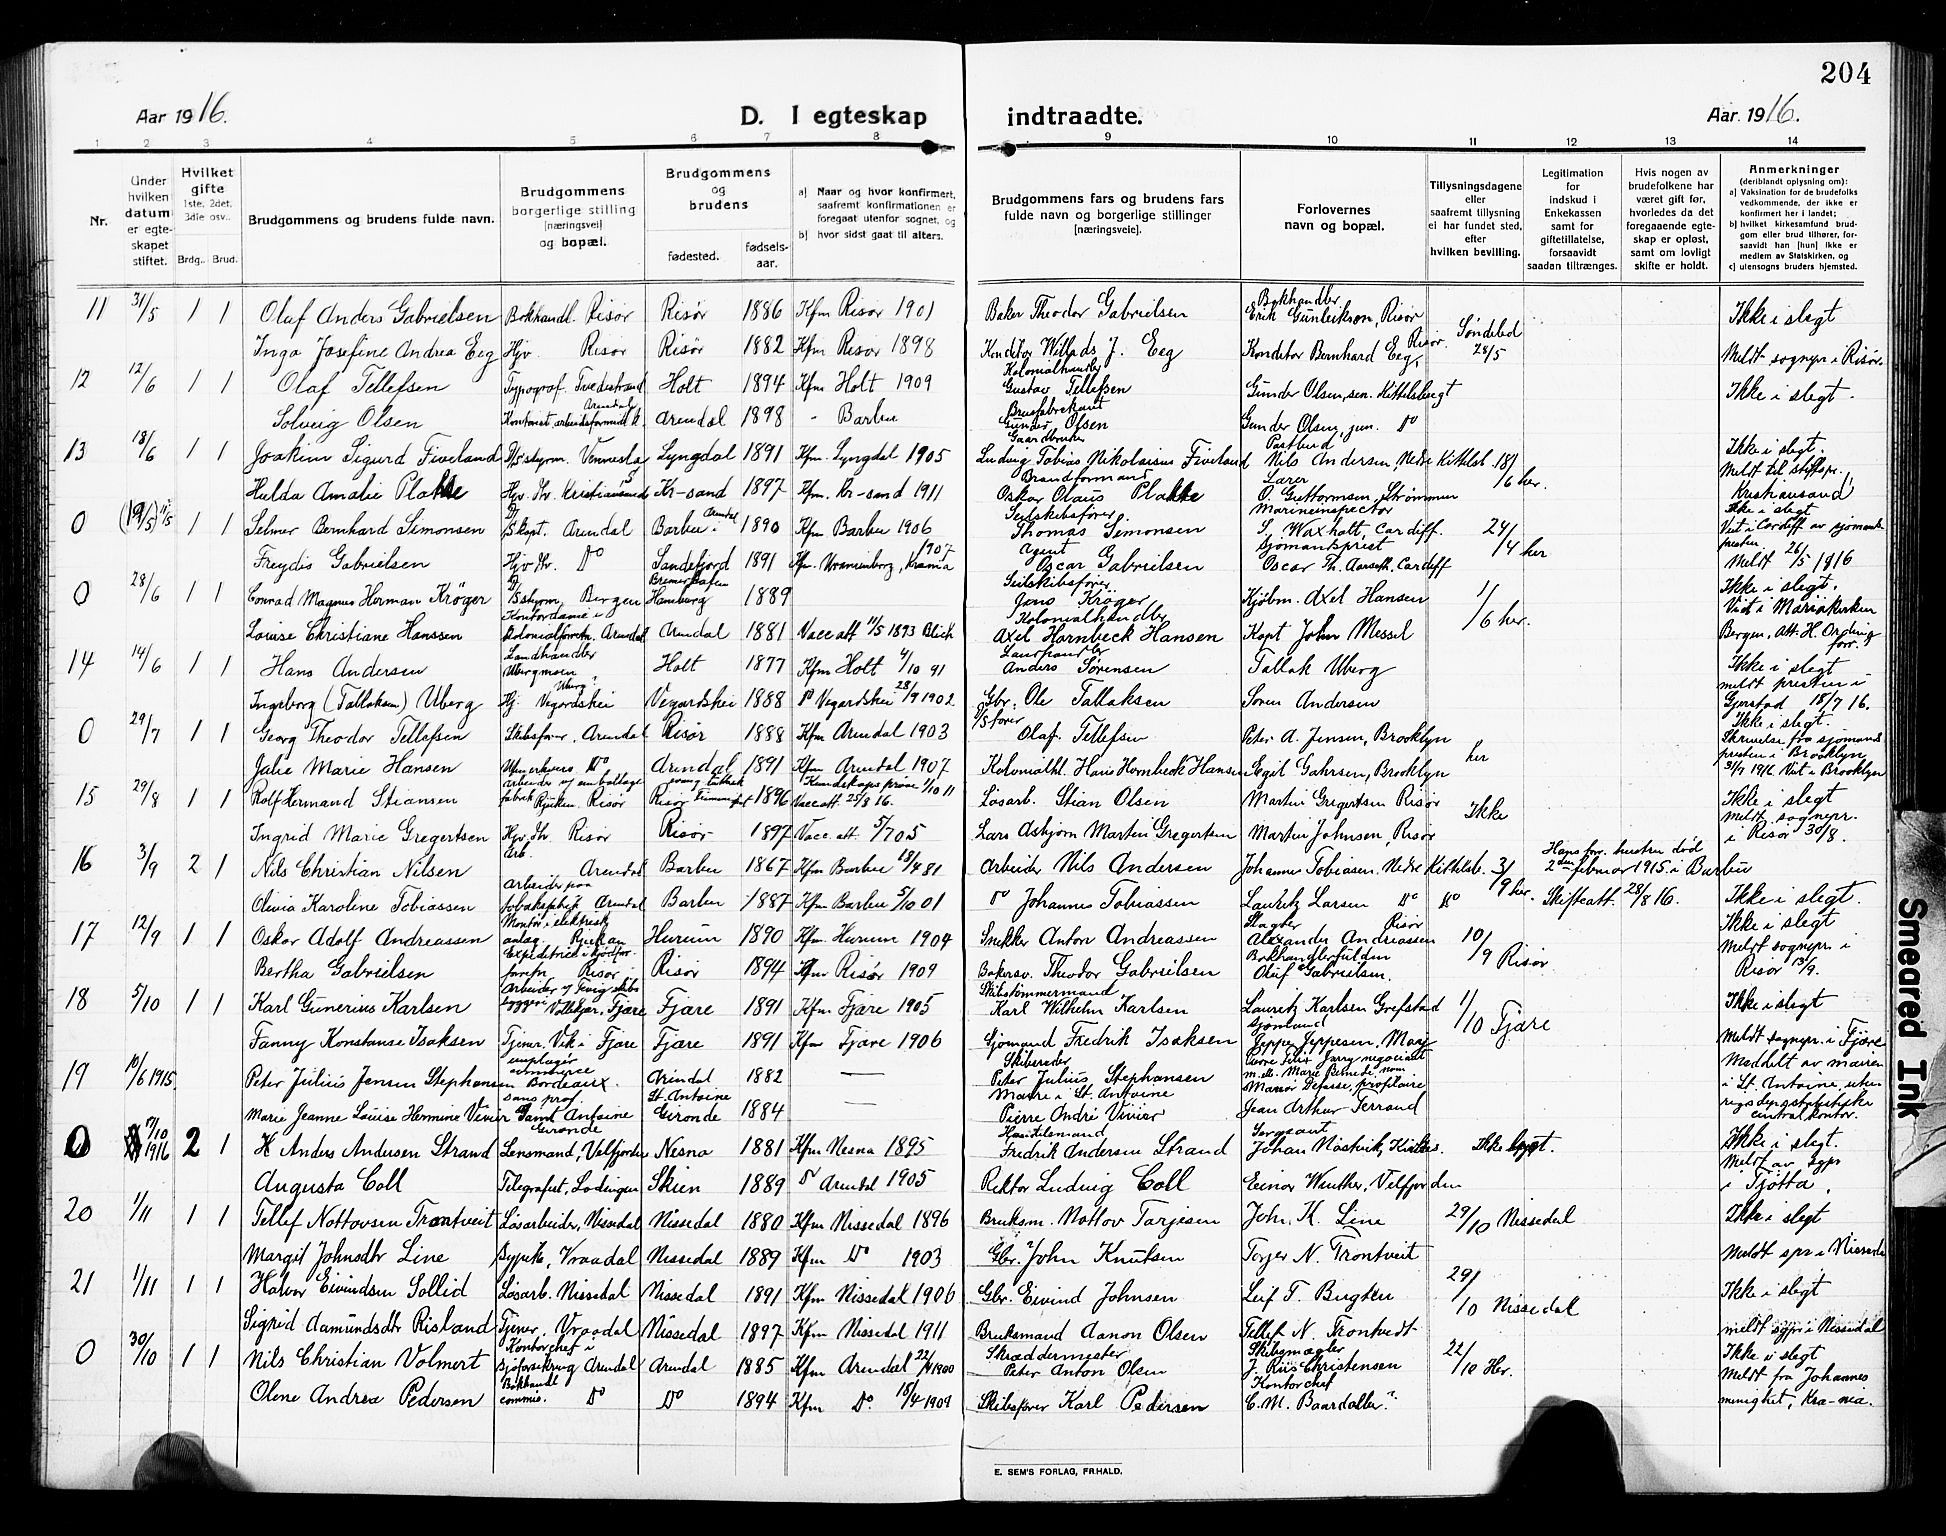 204
Aar 1916.
D. I egteskap indtraadte.
Aar. 1916.
1 2 3 4 5 6 7 8 9 10 11 12 13 14
Nr.
Under hvilken datum er egteskapet stiftet.
Hvilket gifte 1ste, 2det, 3die osv..
Brdg.. Brud.
Brudgommens og brudens fulde navn.
Brudgommens borgerlige stilling [næringsvei] og bopæl.
Brudgommens og brudens
fødested.
fødsels-aar.
a) Naar og hvor konfirmert, saafremt konfirmationen er foregaat utenfor sognet, og
b) hvor sidst gaat til alters.
Brudgommens fars og brudens fars fulde navn og borgerlige stillinger [næringsveie].
Forlovernes navn og bopæl.
Tillysningsdagene eller saafremt tillysning ei har fundet sted, efter hvilken bevilling.
Legitimation for indskud i Enkekassen samt for giftetillatelse, forsaavidt saadan tiltrænges.
Hvis nogen av brudefolkene har været gift før, hvorledes da det foregaaende egteskap er opløst, samt om lovligt skifte er holdt.
Anmerkninger (deriblandt oplysning om):
a) Vaksination for de brudefolks vedkommende, der ikke er konfirmert her i landet;
b) hvilket kirkesamfund brudgom eller brud tilhører, forsaavidt han [hun] ikke er medlem av Statskirken, og
c) utensogns bruders hjemsted.
11 31/5 1 1 Olaf Anders Gabrielsen Bokhandl. Risør Risør 1886 Kfm Risør 1901 Baker Theodor Gabrielsen Bokhandler Erik Gunleikson, Risør Søndeled 28/5 Ikke i slegt
Inga Josefine Andrea Eeg Hjv. Risør Risør 1882 Kfm Risør 1898 Konditor Willads J. Eeg Konditor Bernhard Eeg, Risør. Meldt sognepr. i Risør
12 12/6 1 1 Olaf Tellefsen Typograf. Tvedestrand Holt 1894 Kfm Holt 1909 Kolonialhandler Gustav Tellefsen Gunder Olsen, sen. Kittelsbugt Ikke i slegt.
Solveig Olsen Kontorist, Arendal Arendal 1898 - Barbu Brusfabrikant Gunder Olsen Gunder Olsen, jun. Do
13 18/6 1 1 Joakim Sigurd Fiveland D/s styrm. Vennesla Lyngdal 1891 Kfm. Lyngdal 1905 Gaardbruker Ludvig Tobias Nikolaisus Fiveland Postbud Nils Andersen, Nedre Kittelsb. 18/6 her. Ikke i slegt. Meldt til stiftspr.
Hulda Amalie Platte Hjv. Kristianssand Kr-sand 1897 Kfm. Kr-sand 1911 Brandformand Oskar Olaus Platte Lærer O. Guttormsen, Strømmen Kristiansand
0 (19/5) 1 1 Selmer Bernhard Simonsen D/S kapt. Arendal Barbu Arendal 1890 Kfm Barbu 1906 Seilskibsfører Thomas Simonsen Marineinspector S. Waxholt, Cardiff. 24/4 her Ikke i slegt Viet i Cardiff av sjømandspresten
Freydis Gabrielsen Hjv. Do Sandefjord 1891 Kfm. Uranienborg, Krania 1907 Agent Oscar Gabrielsen Sjømandsprest Oscar Th. Aarseth, Cardiff Meldt 26/5 1916
0 28/6 1 1 Conrad Magnus Herman Krøger D/S styrm. Bergen Bremerhafen Hamburg 1889 Seilskibsfører Jens Krøger Kjøbm. Axel Hansen 1/6 her. Ikke i slegt. Viet i Mariakirken
Louise Christiane Hanssen Kontordame i Kolonialforretn. Arendal Arendal 1881 Vacc att 11/5 1893 Kolonialhandler Axel Hornbeck Hansen Kapt John Messel Bergen, Att. H. Ording
14 14/6 1 1 Hans Andersen Landhandler Ubergmoen Holt 1877 Kfm Holt 4/10 91 Anders Sørensen Tallak Uberg Ikke i slegt
Ingeborg (Tallaksen) Uberg Hj. Vegardshei Vegardshei 1888 Do Vegardshei 28/9 1902 Gbr. Ole Tallaksen Søren Andersen meldt presten i Gjerstad 18/7 16.
0 29/7 1 1 Georg Theodor Tellefsen Skibsfører, Arendal Risør 1888 Kfm Arendal 1903 D/S fører Olaf Tellefsen Peter A. Jensen, Brooklyn her Ikke i slegt. Skrivelse fra sjømandspresten i Brooklyn
Julie Marie Hansen Do Arendal 1891 Kfm Arendal 1907 Kolonialhl. Hans Hornbeck Hansen Egil Gahrsen, Brooklyn 31/7 1916. Viet i Brooklyn
15 29/8 1 1 Rolf Hermand Stiansen Rjukan. Risør Risør 1896 Kundskapsprøve 1/10 11 Vacc att. 25/8 16. Løsarb. Stian Olsen Martin Gregertsen Risør Ikke Ikke i slegt
Ingrid Marie Gregertsen Hjv. Risør Risør 1897 Vacc. att 5/7 05 Lars Asbjørn Martin Gregertsen Martin Johnsen, Risør meldt sognepr. i Risør 30/8.
16 3/9 2 1 Nils Christian Nilsen Arb. Arendal Barbu 1867 Kfm Barbu 18/4 81 Arbeider Nils Andersen Johannes Tobiasen. Nedre Kittelsb. 3/9 her. Hans for. hustru død 2den februar 1915 i Barbu
Olivia Karoline Tobiassen Arbeider paa tobaksfabrik Arendal Barbu 1887 Kfm Barbu 5/10 01 Do Johannes Tobiassen Lauritz Larsen Do Do Skifteatt. 28/8 16. Ikke i slegt.
17 12/9 1 1 Oskar Adolf Andreassen Montør i elektrisk anlæg. Rjukan Hurum 1890 Kfm. Hurum 1904 Snekker Anton Andreassen Slagter Risør Alexander Andreassen 10/9 Risør Ikke i slegt
Bertha Gabrielsen Expeditrice Risør Risør 1894 Kfm Risør 1909 Bakersv. Theodor Gabrielsen Oluf Gabrielsen. Meldt sognepr. i Risør 13/9.
18 5/10 1 1 Karl Gunerius Karlsen Arbeider Fjære Fjære 1891 Kfm Fjære 1905 Skibstømmermand Karl Wilhelm Karlsen Lauritz Karlsen Grefstad 1/10 Fjære Ikke i slegt
Fanny Konstanse Isaksen Tjener. Vik i Fjære Fjære 1891 Kfm Fjære 1906 Sjømand Fredrik Isaksen Sjømand Jeppe Jeppesen, Meldt sognepr. i Fjære
19 10/6 1915 Peter Julius Jensen Stephansen employé commerce Bordeaux. Arendal 1882 — Skibsreder Peter Julius Stephansen Meddelt av mairien
Marie Jeanne Louise Hermine Vivier sans prof. Saint Antoine Gironde St. Antoine Gironde 1884 — Maire i St. Antoine Pierre André Vivier Jean Arthur Ferrand i St. Antoine, centralkontor.
0 7/10 1916 2 1 Anders Andersen Strand Lensmand, Velfjorden Nesna 1881 Kfm Nesna 1895 Handelsmand Fredrik Andersen Strand Sergeant Johan Ikke lyst. Ikke i slegt. Meldt av sgpr
Augusta Coll Telegrafist, Lødingen Skien 1889 Do Arendal 1905 Rektor Ludvig Coll Einar Winther, Velfjorden i Tjøtta.
20 1/11 1 1 Tellef Nottovsen Trontveit Løsarbeider, Nissedal Nissedal 1880 Kfm Nissedal 1896 Bruksm. Nottov Tarjesen John. K. Line 29/10 Nissedal Ikke i slegt
Margit Johnsdtr Line Sypike, Vraadal Nissedal 1889 Kfm Do 1903 Gbr. John Knutsen Torjer N. Trontveit Meldt spr i Nissedal
21 1/11 1 1 Halvor Eivindsen Sollid Løsarb. Nissedal Nissedal 1891 Kfm Nissedal 1906 Gbr. Eivind Johnsen Leif T. Bugten 29/10 Nissedal Ikke i slegt
Sigrid Aamundsdtr Risland Tjener, Vraadal Nissedal 1897 Kfm Nissedal 1911 Bruksmand Aanon Olsen Tellef N. Trontvedt meldt sgpr i Nissedal
0 30/10 1 1 Nils Christian Volmert Kontorchef i Sjøforsikring Arendal Arendal 1885 Kfm Arendal 22/4 1900 Skræddermester Peter Anton Olsen Skibsmægler J. Riis Christensen 22/10 Her. Ikke i slegt
Olene Andrea Pedersen Bokhandl commis. Do Do 1894 Kfm Do. 18/4 1909 Skibsfører Karl Pedersen Kontorchef C. M. Baardalter? Meldt fra Johannes menighet, Kra-nia.
E. SEM'S FORLAG, FR.HALD.
Smeared Ink